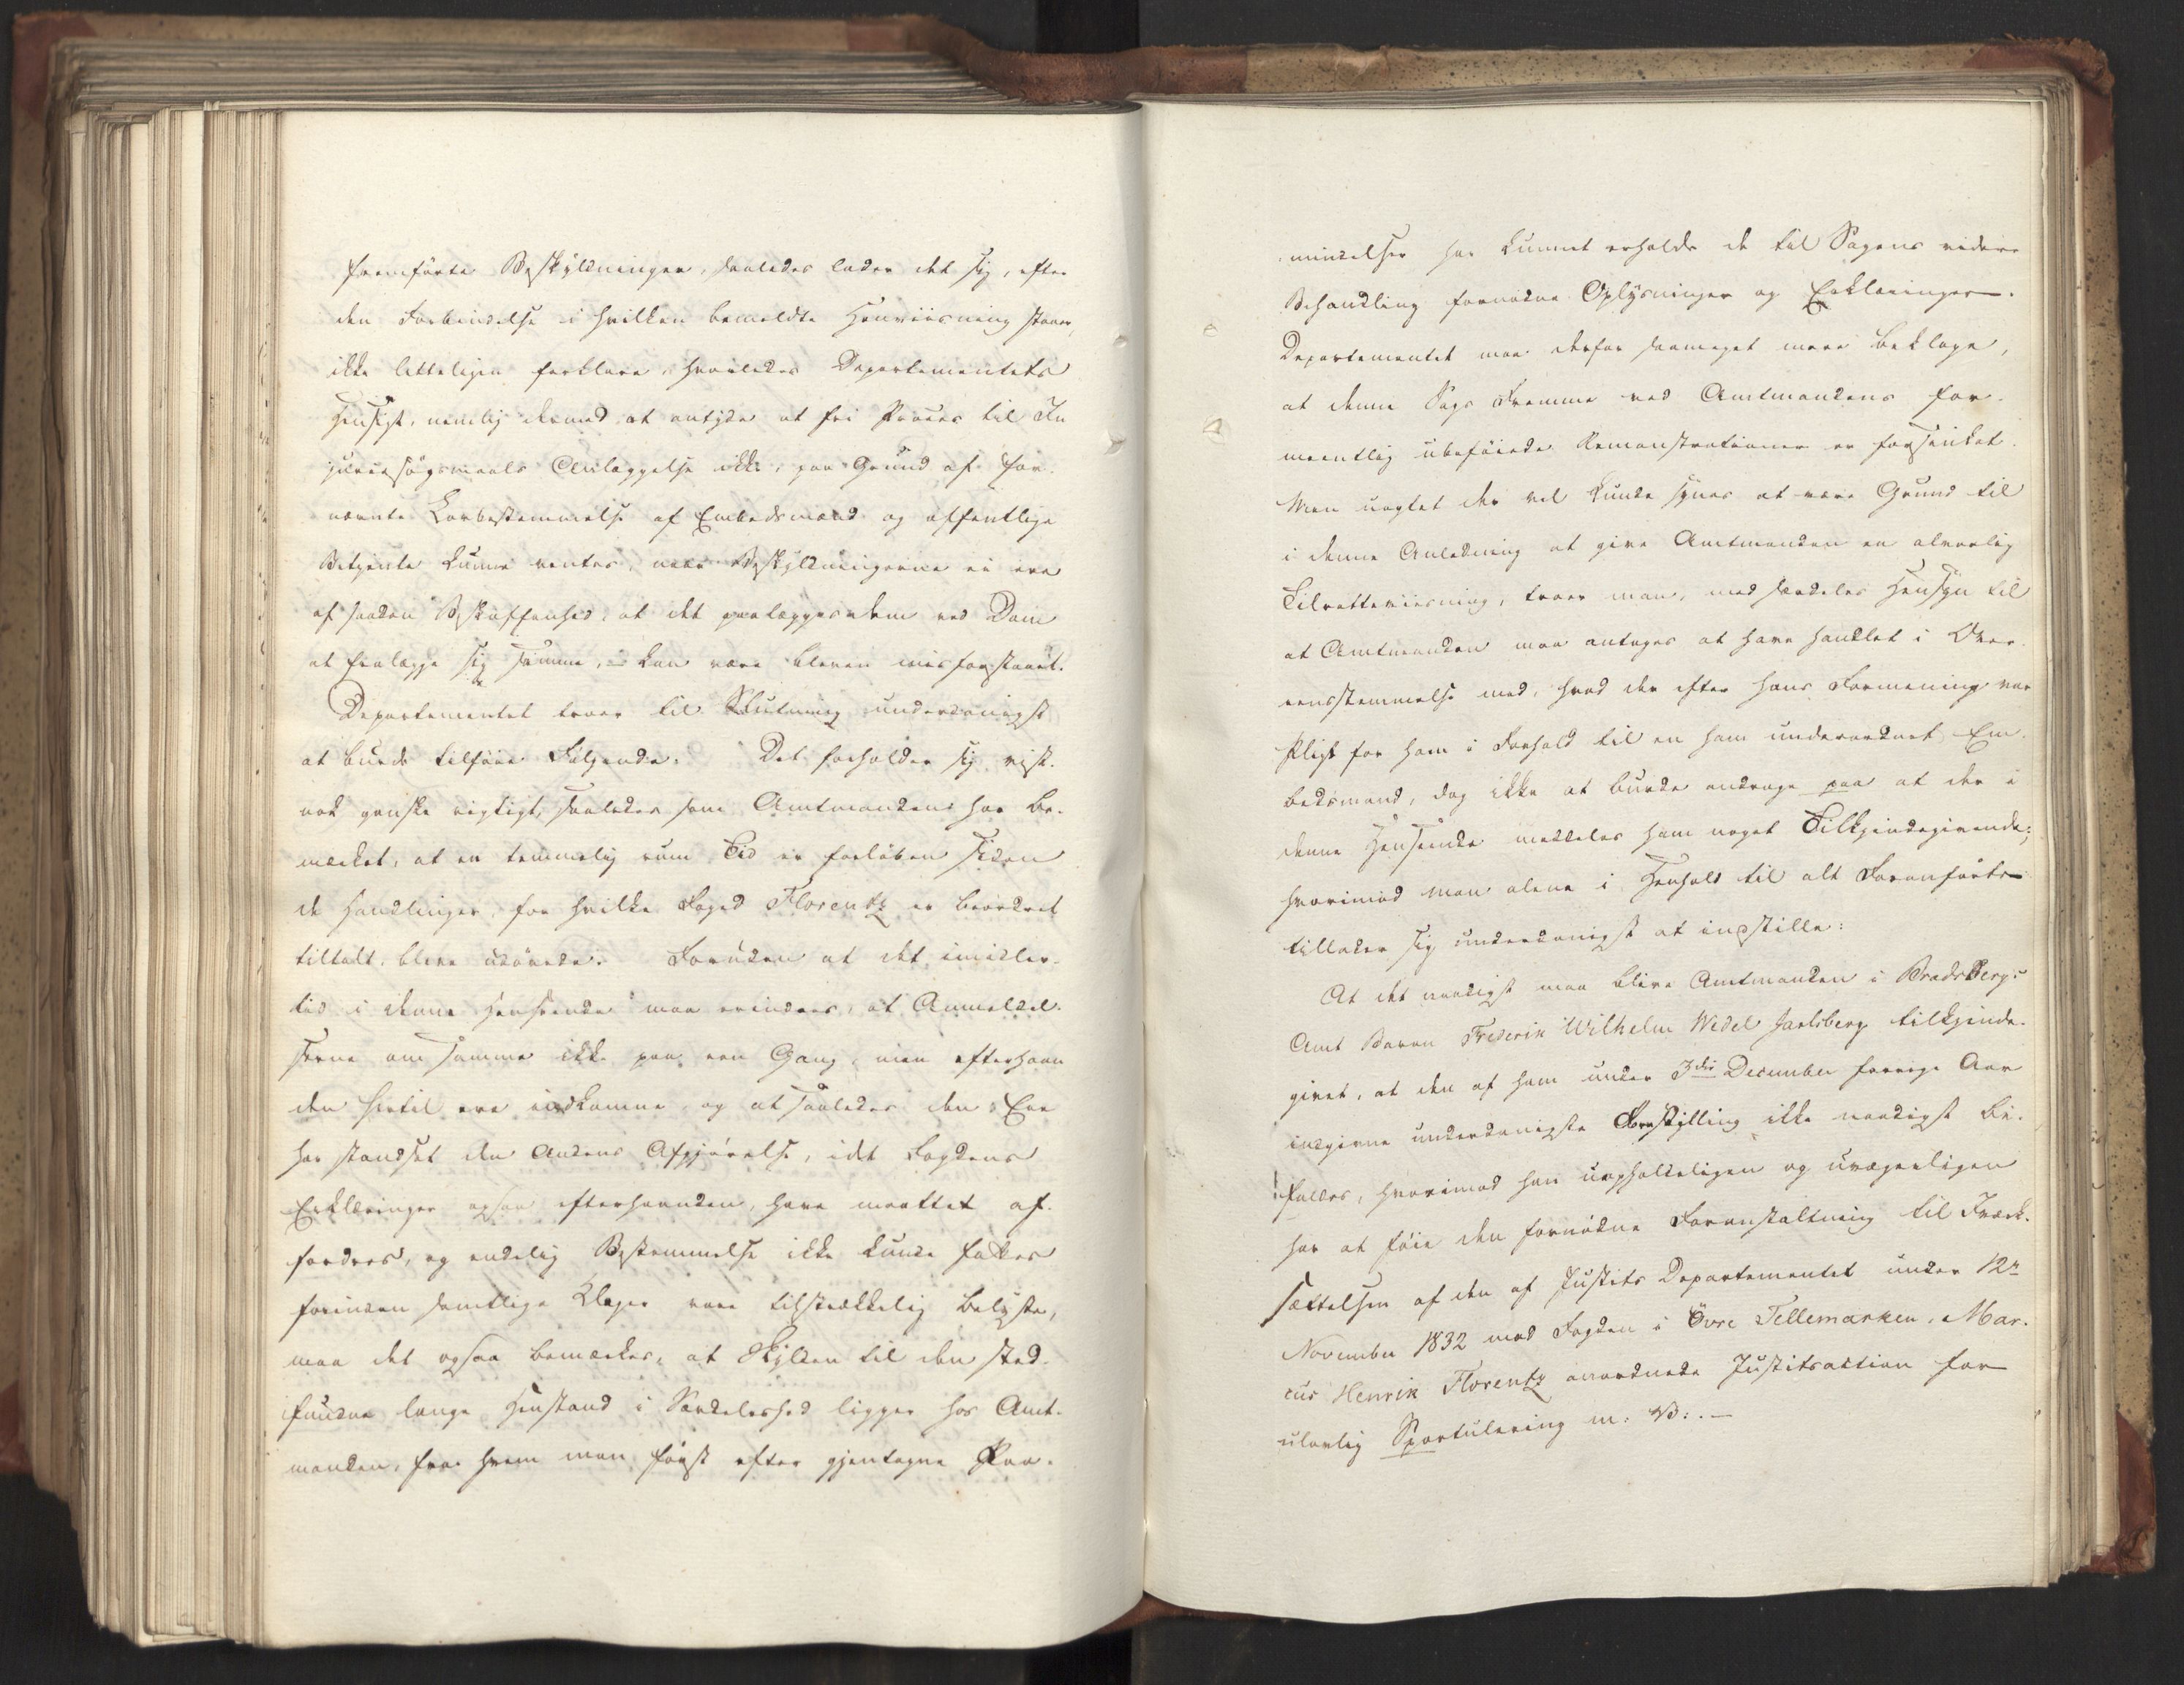 fremførte Beskyldninger, saaledes lader det sig, efter
den Forbindelse i hvilken bemeldte Henviisning staaer,
ikke letteligen forklare, hvorledes Departementets
Hensigt, nemlig dermed at antyde at fri Proces til In
juriesøgsmaals Anlæggelse ikke, paa Grund af for-
nævnte Lovbestemmelse af Embedsmænd og offentlige
Betjente kunne ventes, naar Beskyldningerne ei ere
af saadan Beskaffenhed, at det paalægges dem ved Dom
at fralægge sig samme, kan være bleven misforstaaet.
Departementet troer til Slutning underdanigst
at burde tilføie Følgende: Det forholder sig vist-
nok ganske rigtigt, saaledes som Amtmanden har be-
mærket, at en temmelig rum Tid er forløben siden
de Handlinger, for hvilke Foged Florentz er beordret
tiltalt, bleve udøvede. Foruden at det imidler-
tid i denne Henseende maa erindres, at Anmeldel-
serne om samme ikke paa een Gang, men efterhaan
den hertil ere indkomne, og at saaledes den Ene
har standset den Andens Afgjørelse, idet Fogdens
Erklæringer ogsaa efterhaanden have maattet af-
fordres, og endelig Bestemmelse ikke kunde fattes
forinden samtlige Klager vare tilstrækkelig belyste,
maa det ogsaa bemærkes, at Skylden til den sted-
fundne lange Henstand i Særdeleshed ligger hos Amt-
manden, fra hvem man først efter gjentagne Paa-
mindelser har kunnet erholde de til Sagens videre
Behandling fornødne Oplysninger og Erklæringer.
Departementet maa derfor saameget mere beklage,
at denne Sags Fremme ved Amtmandens for-
meentlig ubeføiede Remonstrationer er forsinket.
Men uagtet der vel kunde synes at være Grund til
i denne Anledning at give Amtmanden en alvorlig
Tilretteviisning, troer man, med særdeles Hensyn til
at Amtmanden maa antages at have handlet i Over-
eensstemmelse med, hvad der efter hans Formening var
Pligt for ham i Forhold til en ham underordnet Em-
bedsmand, dog ikke at burde andrage paa at der i
denne Henseende meddeles ham noget Tilkjendegivende;
hvorimod man alene i Henhold til alt Foranførte
tillader sig underdanigst at indstille:
At det naadigst maa blive Amtmanden i Bradsbergs
Amt Baron Frederik Wilhelm Wedel Jarlsberg tilkjende-
givet, at den af ham under 3die December forrige Aar
indgivne underdanigste Forestilling ikke naadigst bi-
faldes, hvorimod han uopholdeligen og uvægerligen
har at føie den fornødne Foranstaltning til Iværk-
sættelsen af den af Justits Departementet under 12te
November 1832 mod Fogden i Øvre Tellemarken, Mar-
cus Henrik Florentz anordnede Justitsaction for
ulovlig Sportulering m: V:.-